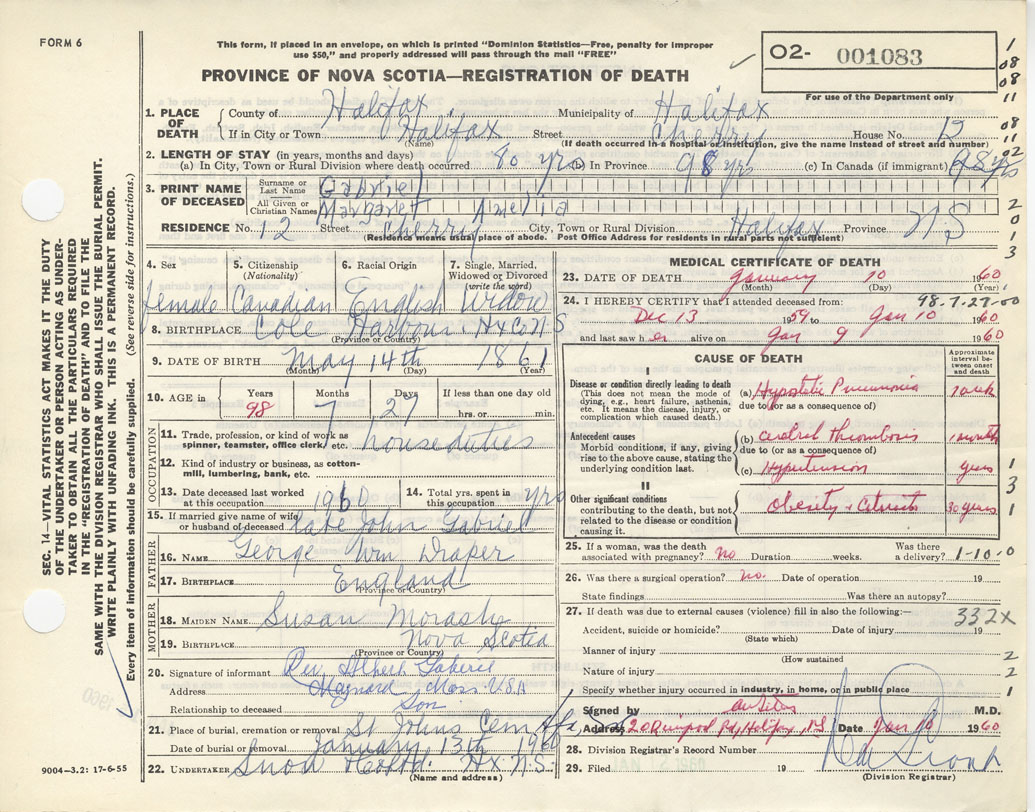 FORM 6
This form, if placed in an envelope, on which is printed "Dominion Statistics—Free, penalty for improper
use $50," and properly addressed will pass through the mail "FREE"
PROVINCE OF NOVA SCOTIA—REGISTRATION OF DEATH
O2- 001083
For use of the Department only
1. PLACE OF DEATH County of Halifax Municipality of Halifax
If in City or Town Halifax Street Cherry House No. 12
(Name) (If death occurred in a hospital or institution, give the name instead of street and number)
2. LENGTH OF STAY (in years, months and days)
(a) In City, Town or Rural Division where death occurred 80 yrs (b) In Province 98 yrs (c) In Canada (if immigrant) 98 yrs
3. PRINT NAME OF DECEASED Surname or Last Name Gabriel
All Given or Christian Names Margaret Amelia
RESIDENCE No. 12 Street Cherry City, Town or Rural Division Halifax Province NS
(Residence means usual place of abode. Post Office Address for residents in rural parts not sufficient)
4. Sex female
5. Citizenship (Nationality) Canadian
6. Racial Origin English
7. Single, Married, Widowed or Divorced (write the word) Widow
8. BIRTHPLACE Cole Harbour Hx Co N S
(Province or Country)
9. DATE OF BIRTH May 14th 1861
(Month) (Day) (Year)
10. AGE in Years 98 Months 7 Days 27 If less than one day old hrs. or min.
OCCUPATION
11. Trade, profession, or kind of work as spinner, teamster, office clerk, etc. houseduties
12. Kind of industry or business, as cotton-mill, lumbering, bank, etc.
13. Date deceased last worked at this occupation 1960
14. Total yrs. spent in this occupation yrs
15. If married give name of wife or husband of deceased late John Gabriel
FATHER
16. NAME George Wm Draper
17. BIRTHPLACE England
(Province or Country)
MOTHER
18. MAIDEN NAME Susan Morash
19. BIRTHPLACE Nova Scotia
(Province or Country)
20. Signature of informant Rev
Address Maynard Mass U.S.A
Relationship to deceased Son
21. Place of burial, cremation or removal St Johns Cem
Date of burial or removal January 13th 1960
22. UNDERTAKER Snow Hx N.S.
(Name and address)
MEDICAL CERTIFICATE OF DEATH
23. DATE OF DEATH January 10 1960
(Month) (Day) (Year)
24. I HEREBY CERTIFY that I attended deceased from: 98-7-27-00
Dec 13 1959 to Jan 10 1960
and last saw her alive on Jan 9 1960
CAUSE OF DEATH
Approximate interval between onset and death
I
Disease or condition directly leading to death
(This does not mean the mode of dying, e.g., heart failure, asthenia, etc. It means the disease, injury, or complication which caused death.)
(a) Hypostatic Pneumonia
due to (or as a consequence of)
Antecedent causes
Morbid conditions, if any, giving rise to the above cause, stating the underlying condition last.
(b) cerebral thrombosis 1 month
due to (or as a consequence of)
(c) Hypertension years
II
Other significant conditions
contributing to the death, but not related to the disease or condition causing it.
Obesity + 30 years
25. If a woman, was the death associated with pregnancy? No Duration weeks. Was there a delivery? 1-10-0
26. Was there a surgical operation? no. Date of operation 19
State findings Was there an autopsy?
27. If death was due to external causes (violence) fill in also the following:— 332X
Accident, suicide or homicide? Date of injury 19
(State which)
Manner of injury
(How sustained
Nature of injury
Specify whether injury occurred in industry, in home, or in public place
Signed by M.D.
Address 20 Quinpool Rd, Halifax, N.S Date Jan 10 1960
28. Division Registrar's Record Number
29. Filed JAN 12 1960 19
(Division Registrar)
SEC. 14—VITAL STATISTICS ACT MAKES IT THE DUTY
OF THE UNDERTAKER OR PERSON ACTING AS UNDER-
TAKER TO OBTAIN ALL THE PARTICULARS REQUIRED
IN THE "REGISTRATION OF DEATH" AND TO FILE THE
SAME WITH THE DIVISION REGISTRAR WHO SHALL ISSUE THE BURIAL PERMIT.
WRITE PLAINLY WITH UNFADING INK. THIS IS A PERMANENT RECORD.
Every item of information should be carefully supplied. (See reverse side for instructions.)
9004—3.2: 17-6-55
1
08
08
11
08
11
02
2
0
1
3
1
3
1
2
2
1